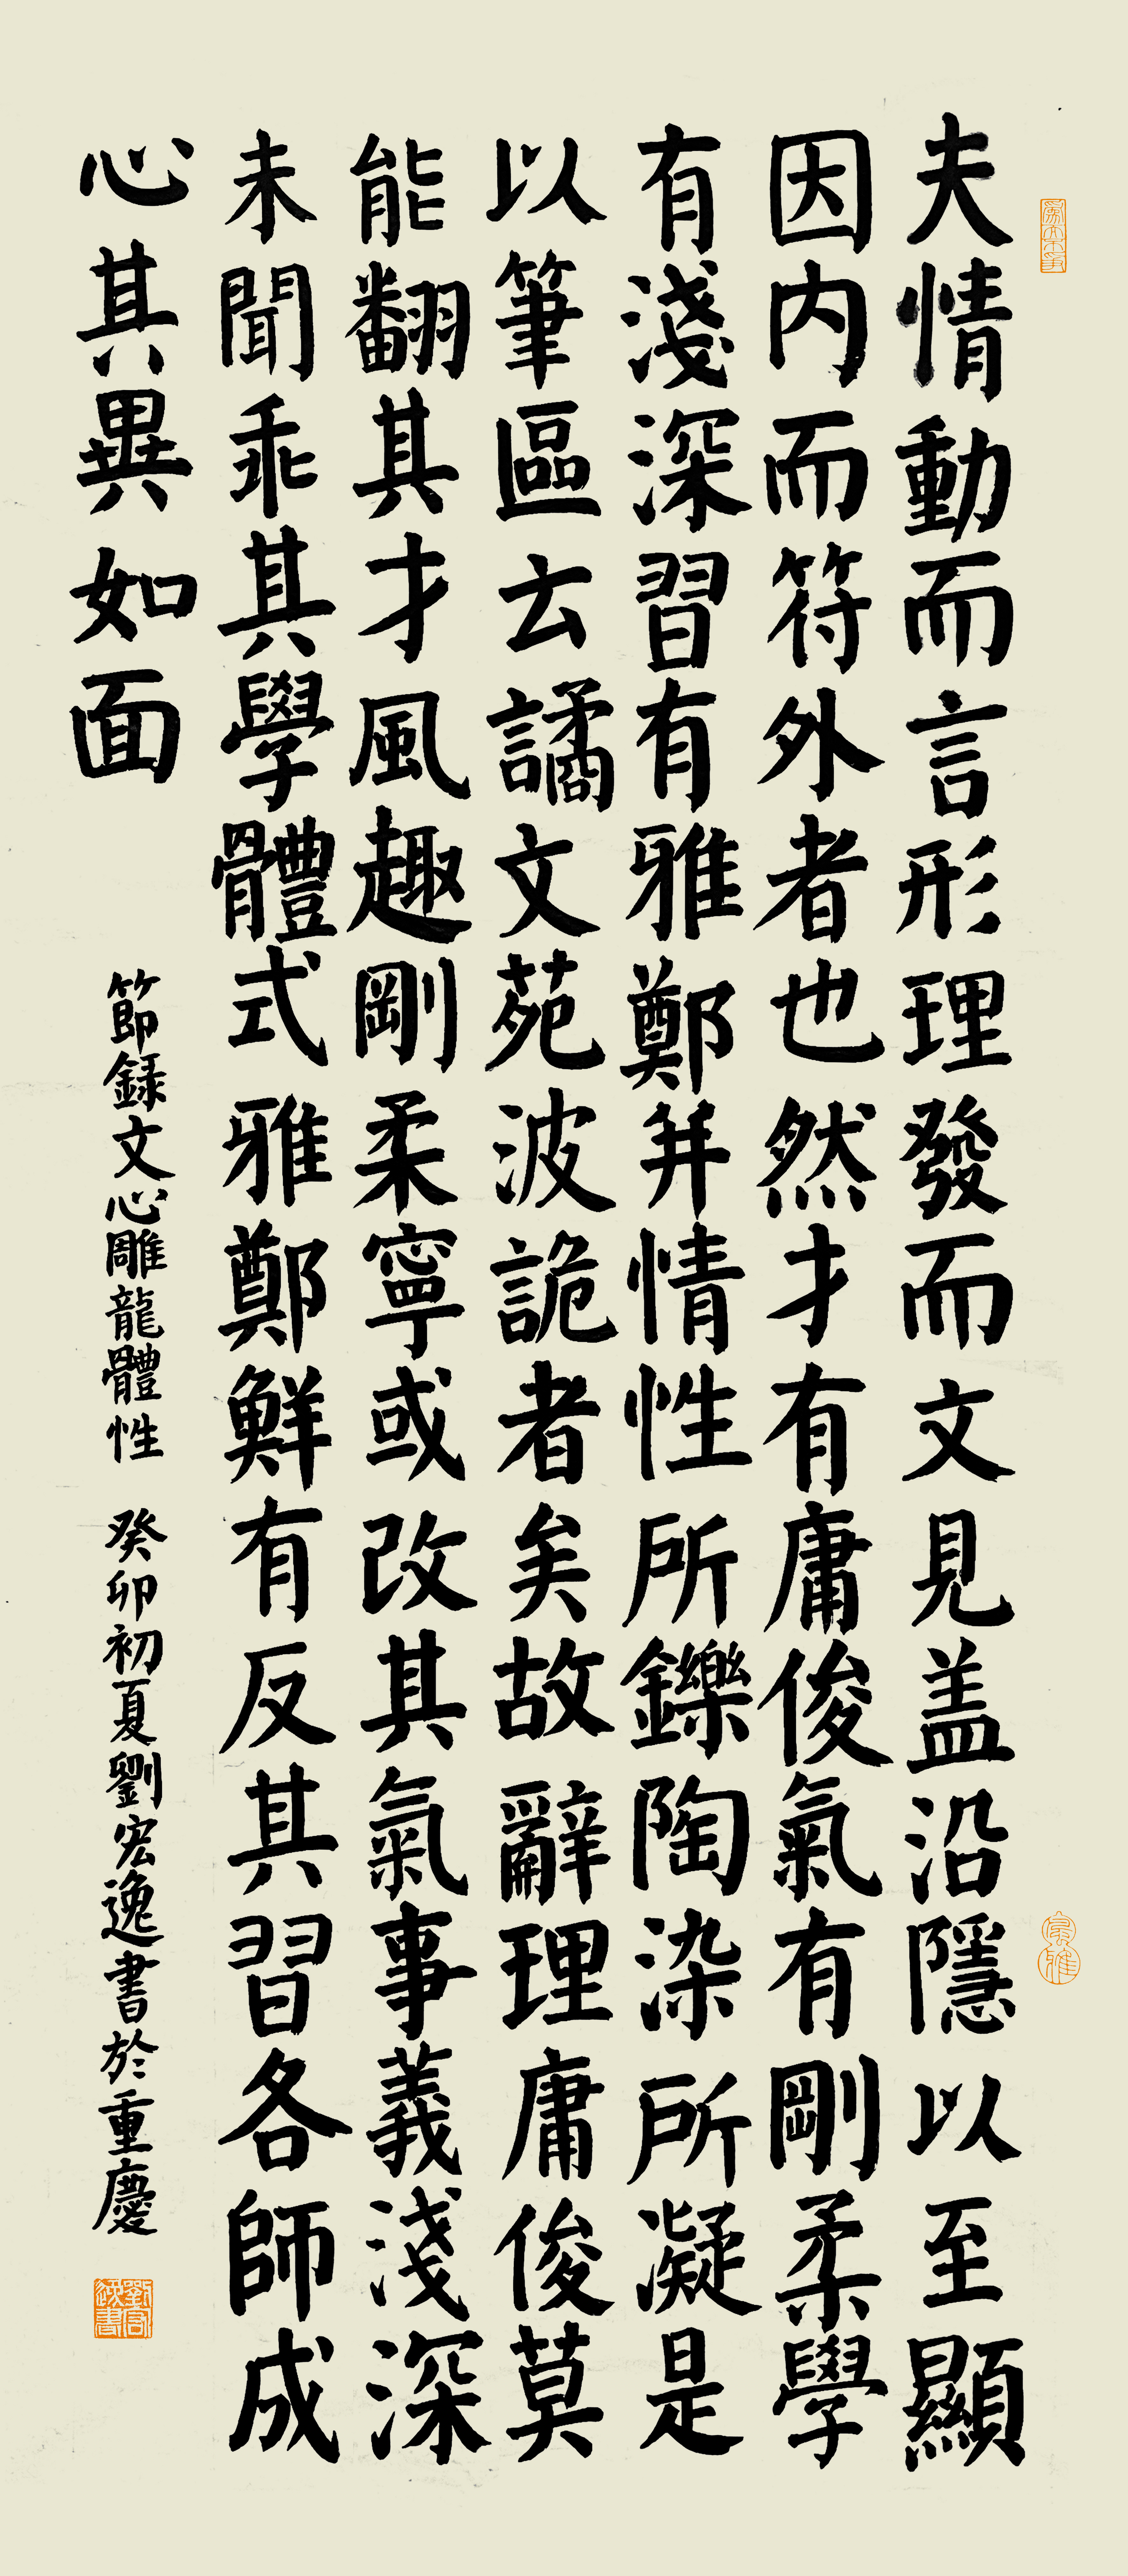 夫情動而言形理發而文見盖沿隱以至顯
因内而符外者也然才有庸俊氣有剛柔學
有淺深習有雅鄭并情性所鑠陶染所凝是
以筆區云譎文苑波詭者矣故辭理庸俊莫
能翻其才風趣剛柔寧或改其氣事義淺深
未聞乖其學體式雅鄭鮮有反其習各師成
心其異如面
節録文心雕龍體性 癸卯初夏劉宏逸書於重慶